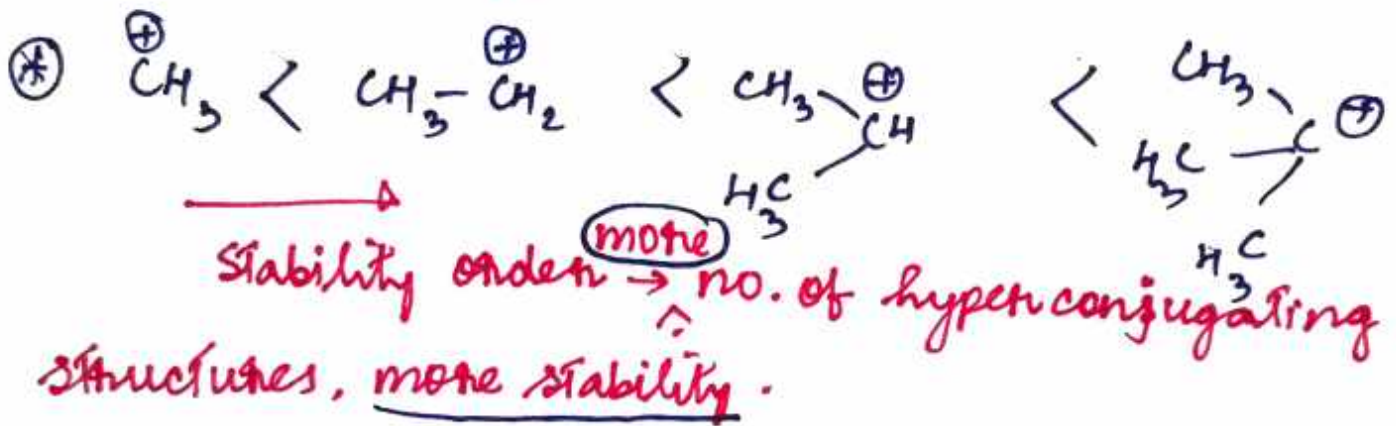 * ⊕CH₃ < CH₃-⊕CH₂ < CH₃ H₃C CH ⊕ < CH₃ H₃C H₃C C ⊕
Stability order → more no. of hyperconjugating
structures, more stability.